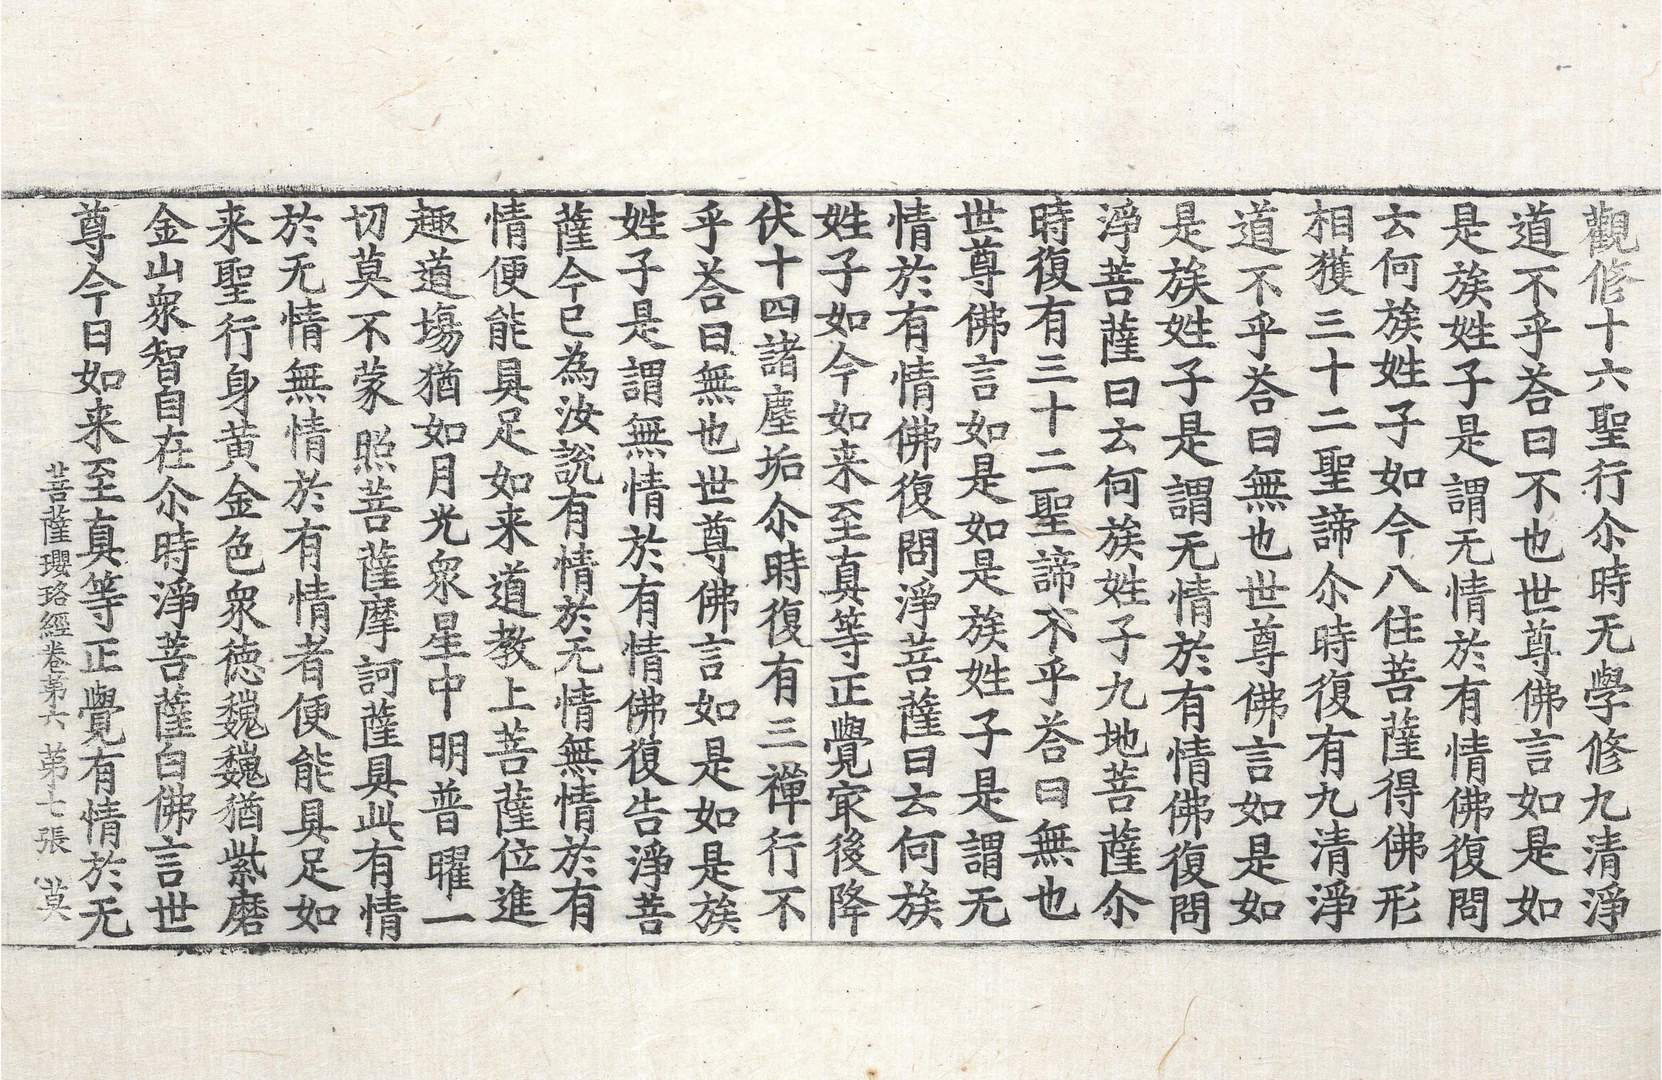 觀修十六聖行尒時无學修九清淨
道不乎荅曰不也世尊佛言如是如
是族姓子是謂无情於有情佛復問
云何族姓子如今八住菩薩得佛形
相獲三十二聖諦尒時復有九清淨
道不乎荅曰無也世尊佛言如是如
是族姓子是謂无情於有情佛復問
淨菩薩曰云何族姓子九地菩薩尒
時復有三十二聖諦不乎荅曰無也
世尊佛言如是如是族姓子是謂无
情於有情佛復問淨菩薩曰云何族
姓子如今如来至真等正覺㝡後降
伏十四諸塵垢尒時復有三禪行不
乎荅曰無也世尊佛言如是如是族
姓子是謂無情於有情佛復告淨菩
薩今已為汝說有情於无情無情於有
情便能具足如来道教上菩薩位進
趣道場猶如月光衆星中明普曜一
切莫不蒙照菩薩摩訶薩具此有情
於无情無情於有情者便能具足如
来聖行身黃金色衆德巍巍猶紫磨
金山衆智自在尒時淨菩薩白佛言世
尊今日如来至真等正覺有情於无
菩薩瓔珞經卷第六 第七張 莫